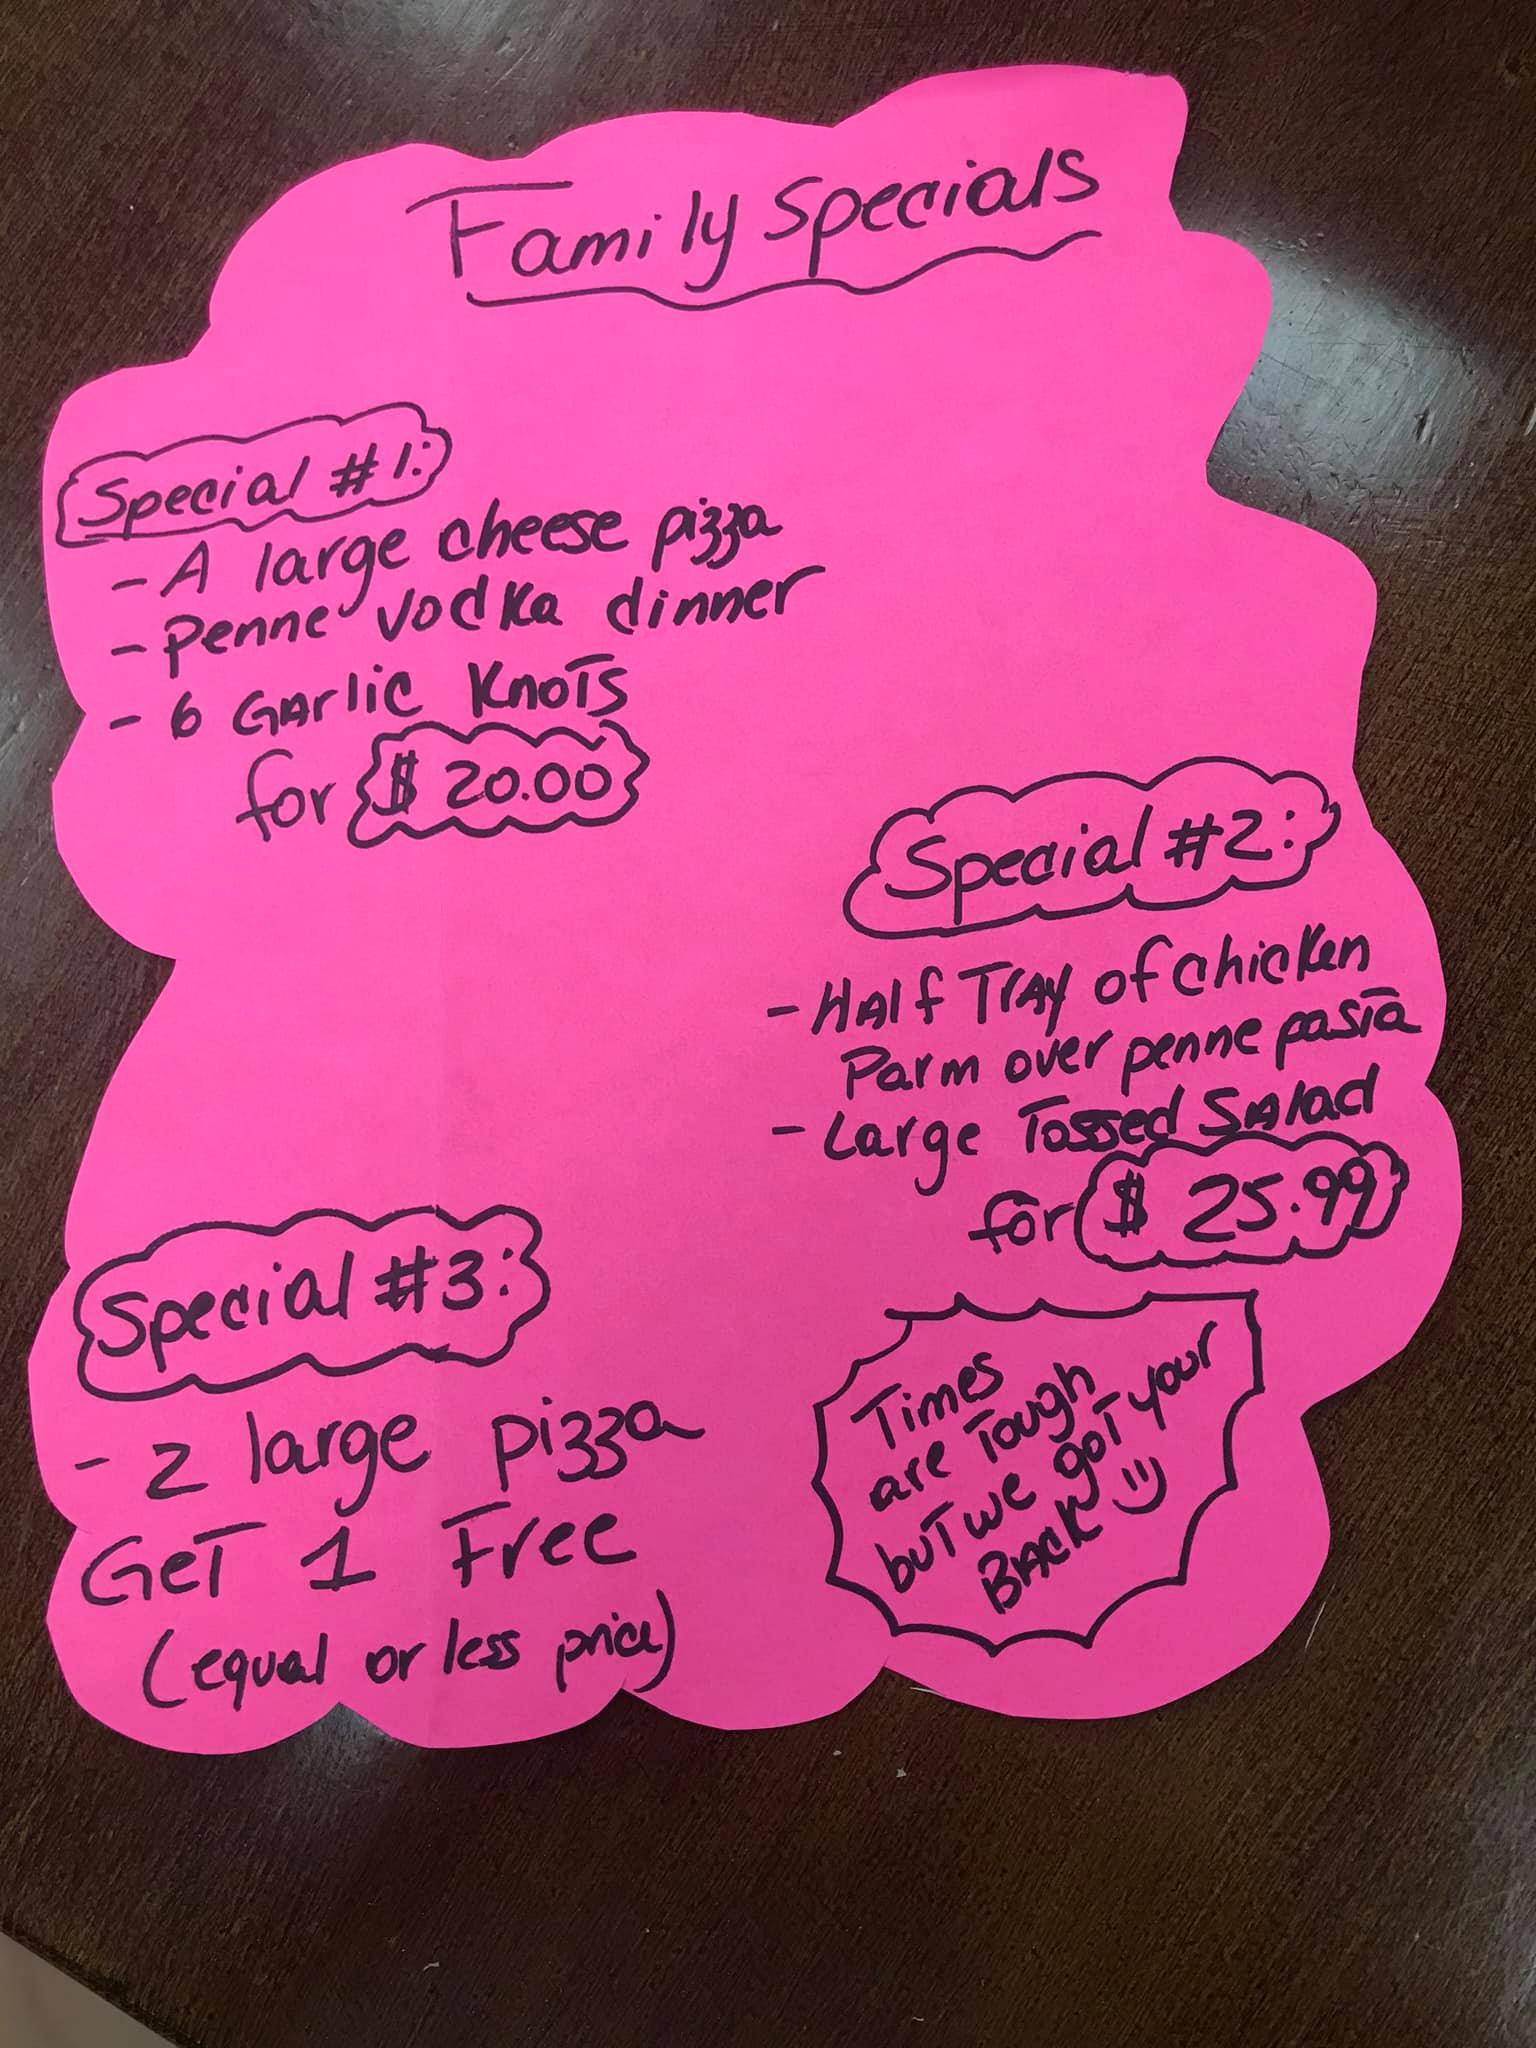 Family Specials
Special #1:
- A large cheese pizza
- Penne vodka dinner
- 6 GArlic KnoTs
for $ 20.00
Special #2:
- HAlf TrAy of chicken
Parm over penne pasta
- Large Tossed SAlad
for $ 25.99
Special #3:
- 2 large pizza
GeT 1 Free
(equal or less price)
Times
are Tough
buT we goT your
BACK